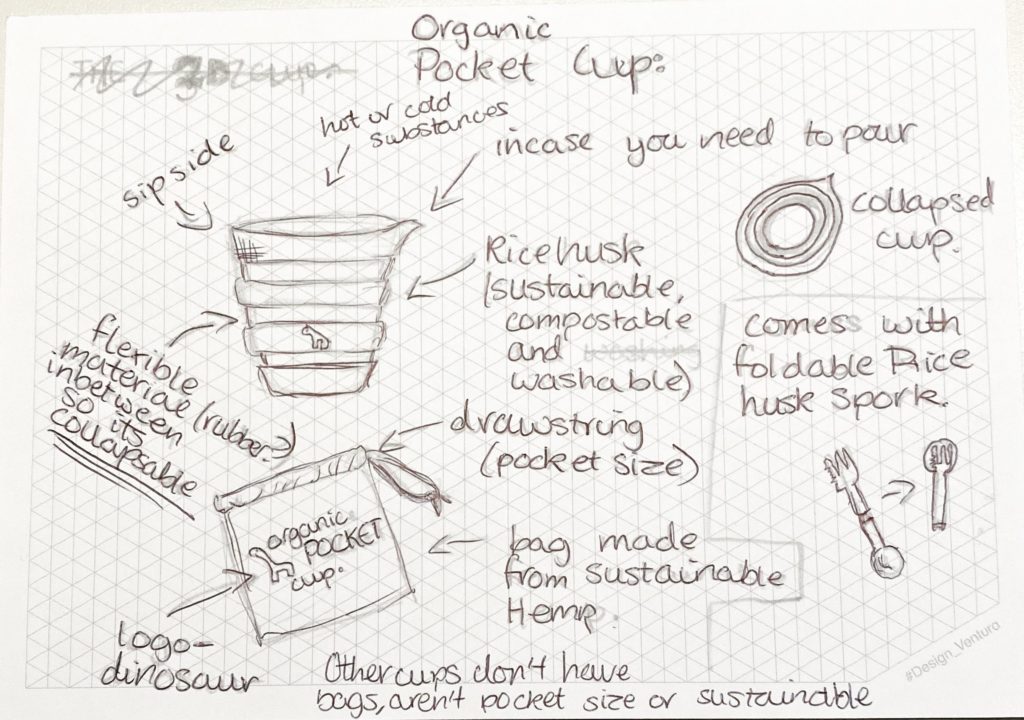 Organic
Pocket Cup:
hot or cold
substances
sip side
incase you need to pour
collapsed
cup.
Rice husk
(sustainable,
compostable
and
washable)
flexible
material (rubber?)
inbetween
so its
collapsable
comess with
foldable Rice
husk Spork.
drawstring
(pocket size)
organic
POCKET
cup:
bag made
from sustainable
Hemp.
logo-
dinosaur
Other cups don't have
bags, aren't pocket size or sustainable
#Design_Ventura